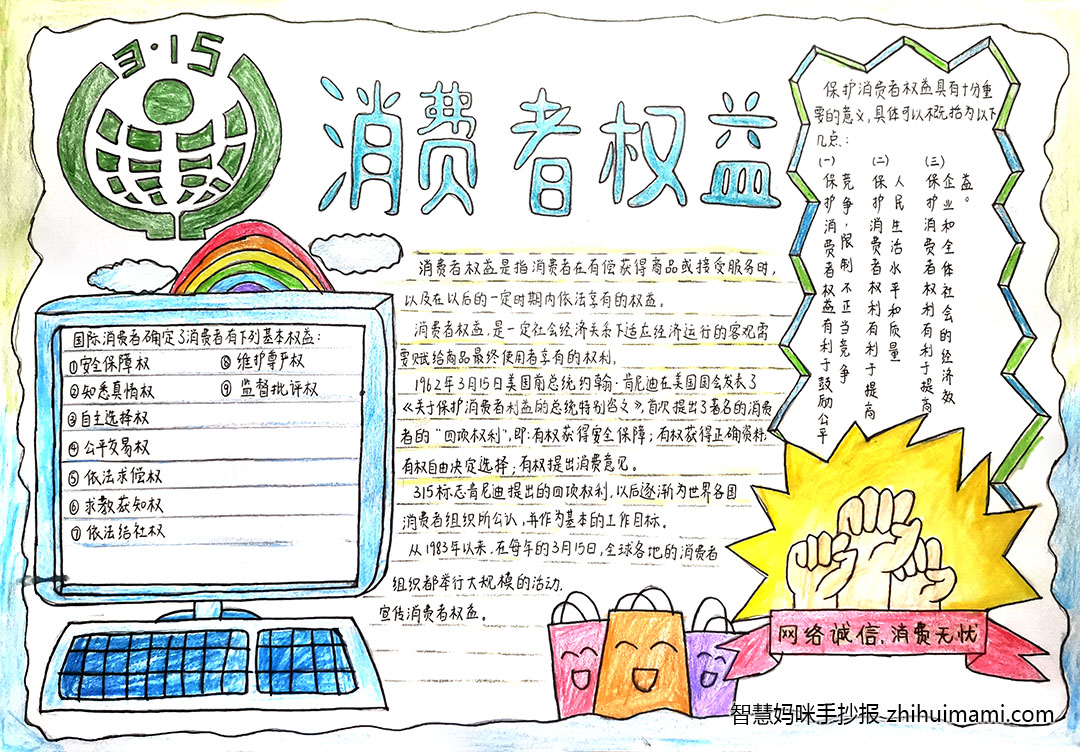 3·15
消费者权益
国际消费者确定了消费者有下列基本权益:
①安全保障权
②知悉真情权
③自主选择权
④公平交易权
⑤依法求偿权
⑥求教获知权
⑦依法结社权
⑧维护尊严权
⑨监督批评权
消费者权益是指消费者在有偿获得商品或接受服务时,
以及在以后的一定时期内依法享有的权益。
消费者权益,是一定社会经济关系下适应经济运行的客观需
要赋给商品最终使用者享有的权利。
1962年3月15日美国前总统约翰·肯尼迪在美国国会发表了
《关于保护消费者利益的总统特别咨文》,首次提出了著名的消费
者的“四项权利”,即:有权获得安全保障;有权获得正确资料;
有权自由决定选择;有权提出消费意见。
315标志肯尼迪提出的四项权利,以后逐渐为世界各国
消费者组织所公认,并作为基本的工作目标。
从1983年以来,在每年的3月15日,全球各地的消费者
组织都举行大规模的活动.
宣传消费者权益。
保护消费者权益具有十分重
要的意义,具体可以概括为以下
几点:
(一)
保护消费者权益有利于鼓励公平
竞争,限制不正当竞争
(二)
保护消费者权利有利于提高
人民生活水平和质量
(三)
保护消费者权利有利于提高
企业和全体社会的经济效
益。
网络诚信,消费无忧
智慧妈咪手抄报 zhihuimami.com